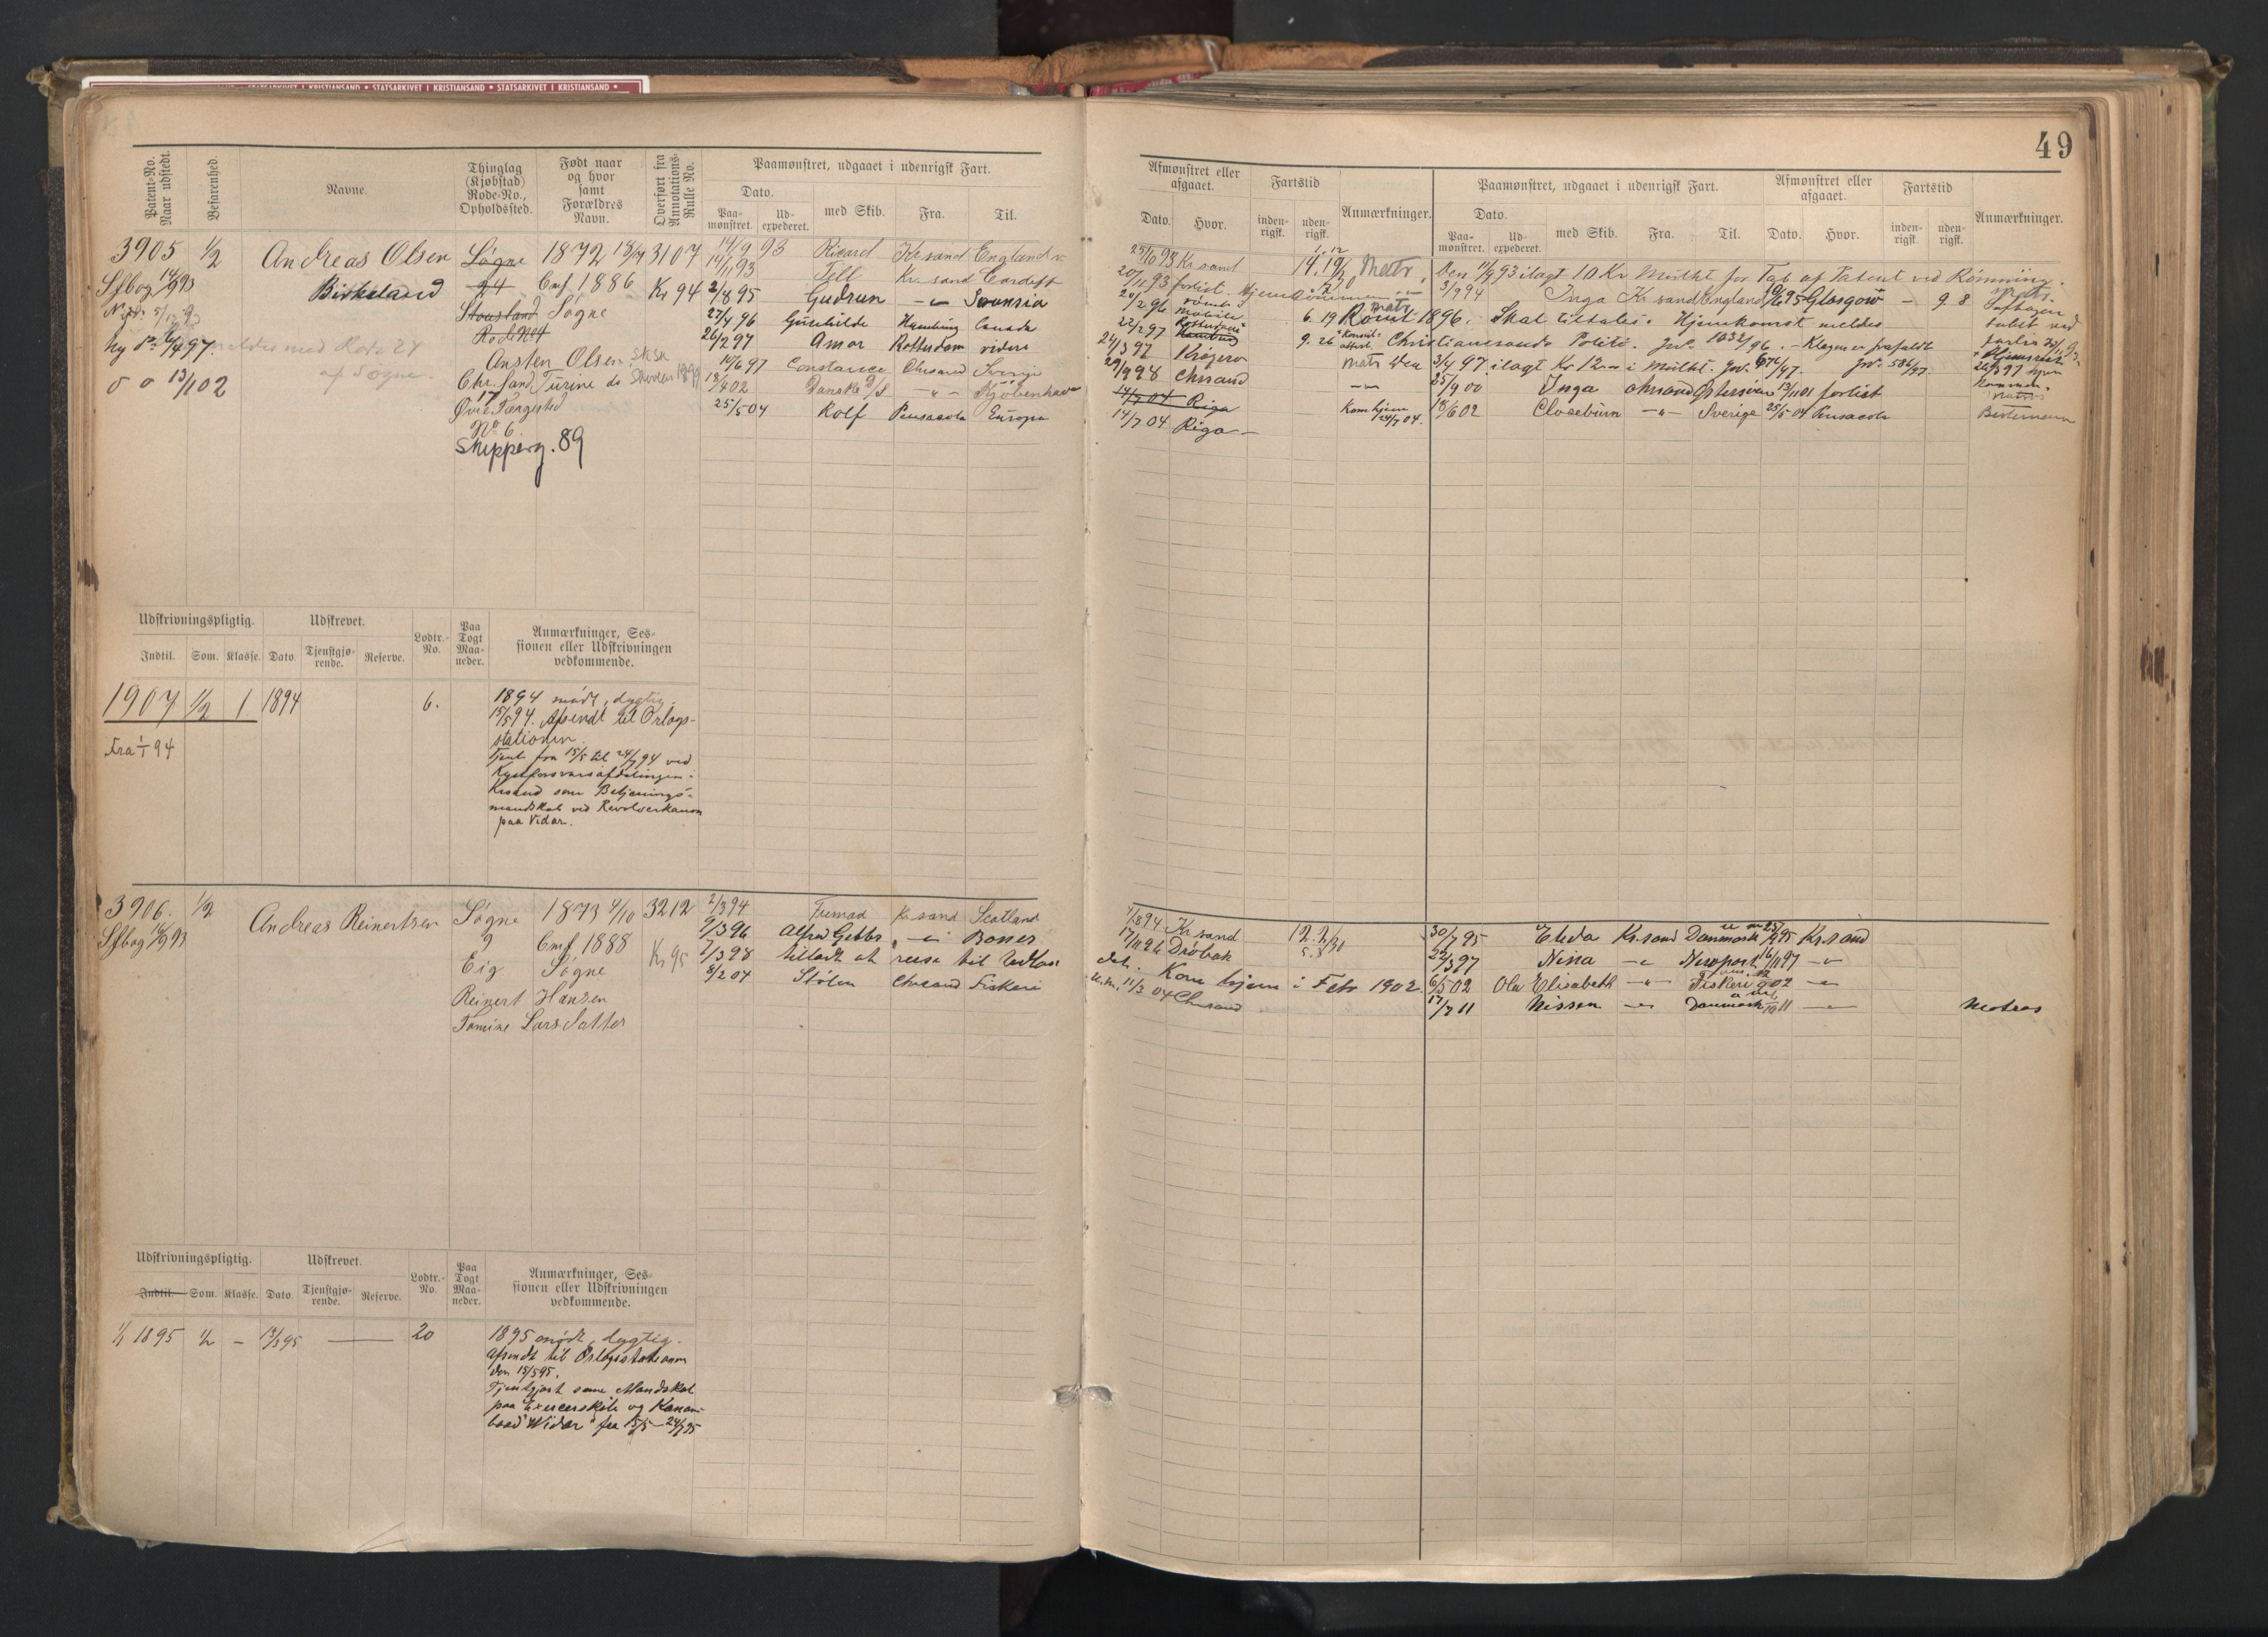 STATSARKIVET I KRISTIANSAND * STATSARKIVET I KRISTIANSAND *
49
Patent-No. Naar udstedt.
Befarenhed.
Navne.
Thinglag (Kjøbstad) Rode-No., Opholdssted.
Født naar og hvor samt Forældres Navn.
Overført fra Annotations-Rulle No.
Paamønstret, udgaaet i udenrigsk Fart.
Dato.
Paa-mønstret.
Ud-expederet.
med Skib.
Fra.
Til.
3905 1/2 Andreas Olsen Søgne 1872 3107 14/9 93 Ricard Kr.sand England
Sfbog 14/9 93 Birkeland 24 Cmf 1886 Kr 94 14/11 93 Tell Kr. sand Cardiff
Stousland Søgne 2/8 95 Gudrun
Rode No 4 27/4 96 Gunhilde Hamburg Canada
Ny Do 1/4 97 meldes med Rode 24 26/2 97 Amor Rotterdam videre
af Søgne.
Ansten Olsen
Chr.sand Turine do 14/6 97 Constance Chrsand
13/1 02 17 18/4 02 Danske D/S - " - Kjøbenhavn
Øvre Torgested 25/5 04 Rolf Pensacola Europa
No 6
Skipperg. 89
Udskrivningspligtig.
Udskrevet.
Lodtr.-No.
Paa Togt Maa-neder.
Anmærkninger, Ses-sionen eller Udskrivningen vedkommende.
Indtil.
Som.
Klasse.
Dato.
Tjenstgjø-rende.
Reserve.
1907 1/2 1 1894 6.
Fra 1/1 94
1894 mødt, dygtig.
15/5 94. Afsendt til Orlogs-
stationen.
Tjent fra 15/5 til 24/7 94 ved
Kystforsvarsafdelingen i
Krsand som Betjenings-
mandskab ved Revolverkanon
paa Vidar.
3906. 1/2 Andreas Reinertsen Søgne 1873 4/10 3212 2/3 94 Fremad Kr.sand Scotland
Sfbog 14/9 93 9 Cmf 1888 Kr 95 9/3 96 Alfred Gibbs - " -
Eig Søgne 7/3 98 tilladt at reise til Udlan
Reinert Hansen 8/2 04 Stølen Chrsand Fiskeri
Tomine Larsdatter
Udskrivningspligtig.
Udskrevet.
Lodtr.-No.
Paa Togt Maa-neder.
Anmærkninger, Ses-sionen eller Udskrivningen vedkommende.
Indtil.
Som.
Klasse.
Dato.
Tjenstgjø-rende.
Reserve.
1/1 1895 1/2 - 13/3 95 20
1895 mødt, dygtig.
Afsendt til Orlogsstationen
den 15/5 95.
Tjentgjort som Mandskab
paa Exercerskib og Kanon-
baad "Widar" fra 15/5 - 24/7 95
Afmønstret eller afgaaet.
Fartstid
Anmærkninger.
Dato.
Hvor.
inden-rigsk.
uden-rigsk.
Paamønstret, udgaaet i udenrigsk Fart.
Afmønstret eller afgaaet.
Fartstid
Anmærkninger.
Dato.
Paa-mønstret.
Ud-expederet.
med Skib.
Fra.
Til.
Dato.
Hvor.
inden-rigsk.
uden-rigsk.
25/10 93 Kr sand Matr. Den 11/9 93 ilagt 10 Kr Mulkt for Tab af Patent ved Rømning.
20/11 93 forlist. 3/9 94 Inga Kr sand England 95 Glasgow - 9 8
20/2 96 rømt i Mobile 6. 19 Rømt 1896. Skal tiltales. Hjemkomst meldes
22/2 97 Rotterdam 9. 26 Christianssands Politi. Jno 1032/96. - Klagen er frafaldt
24/3 97 Kragerø Matr Den 3/4 97 ilagt Kr 12 i Mulkt. Jno. 676/97. Jno. 586/97.
29/9 98 Chrsand 25/9 00 Inga Chrsand Østersøen 13/11 01 forlist
14/7 04 Riga Kom hjem 24/7 04. 18/6 02 Closeburn - " - Sverige 25/5 04 Pensacola Bestemann
14/7 04 Riga -
4/8 94 Kr sand 30/7 95 Eleda Kr.sand Danmark 95 Kr.sand
17/11 96 Drøbak 22/3 97 Nina - " - Newport 16/11 97 - " -
Kom hjem i Febr 1902. 6/5 02 Ole Elisabeth - " - Fiskeri 02 - " -
11/3 04 Chrsand 17/7 11 Nissen - " - Danmark 11 - " - Matros